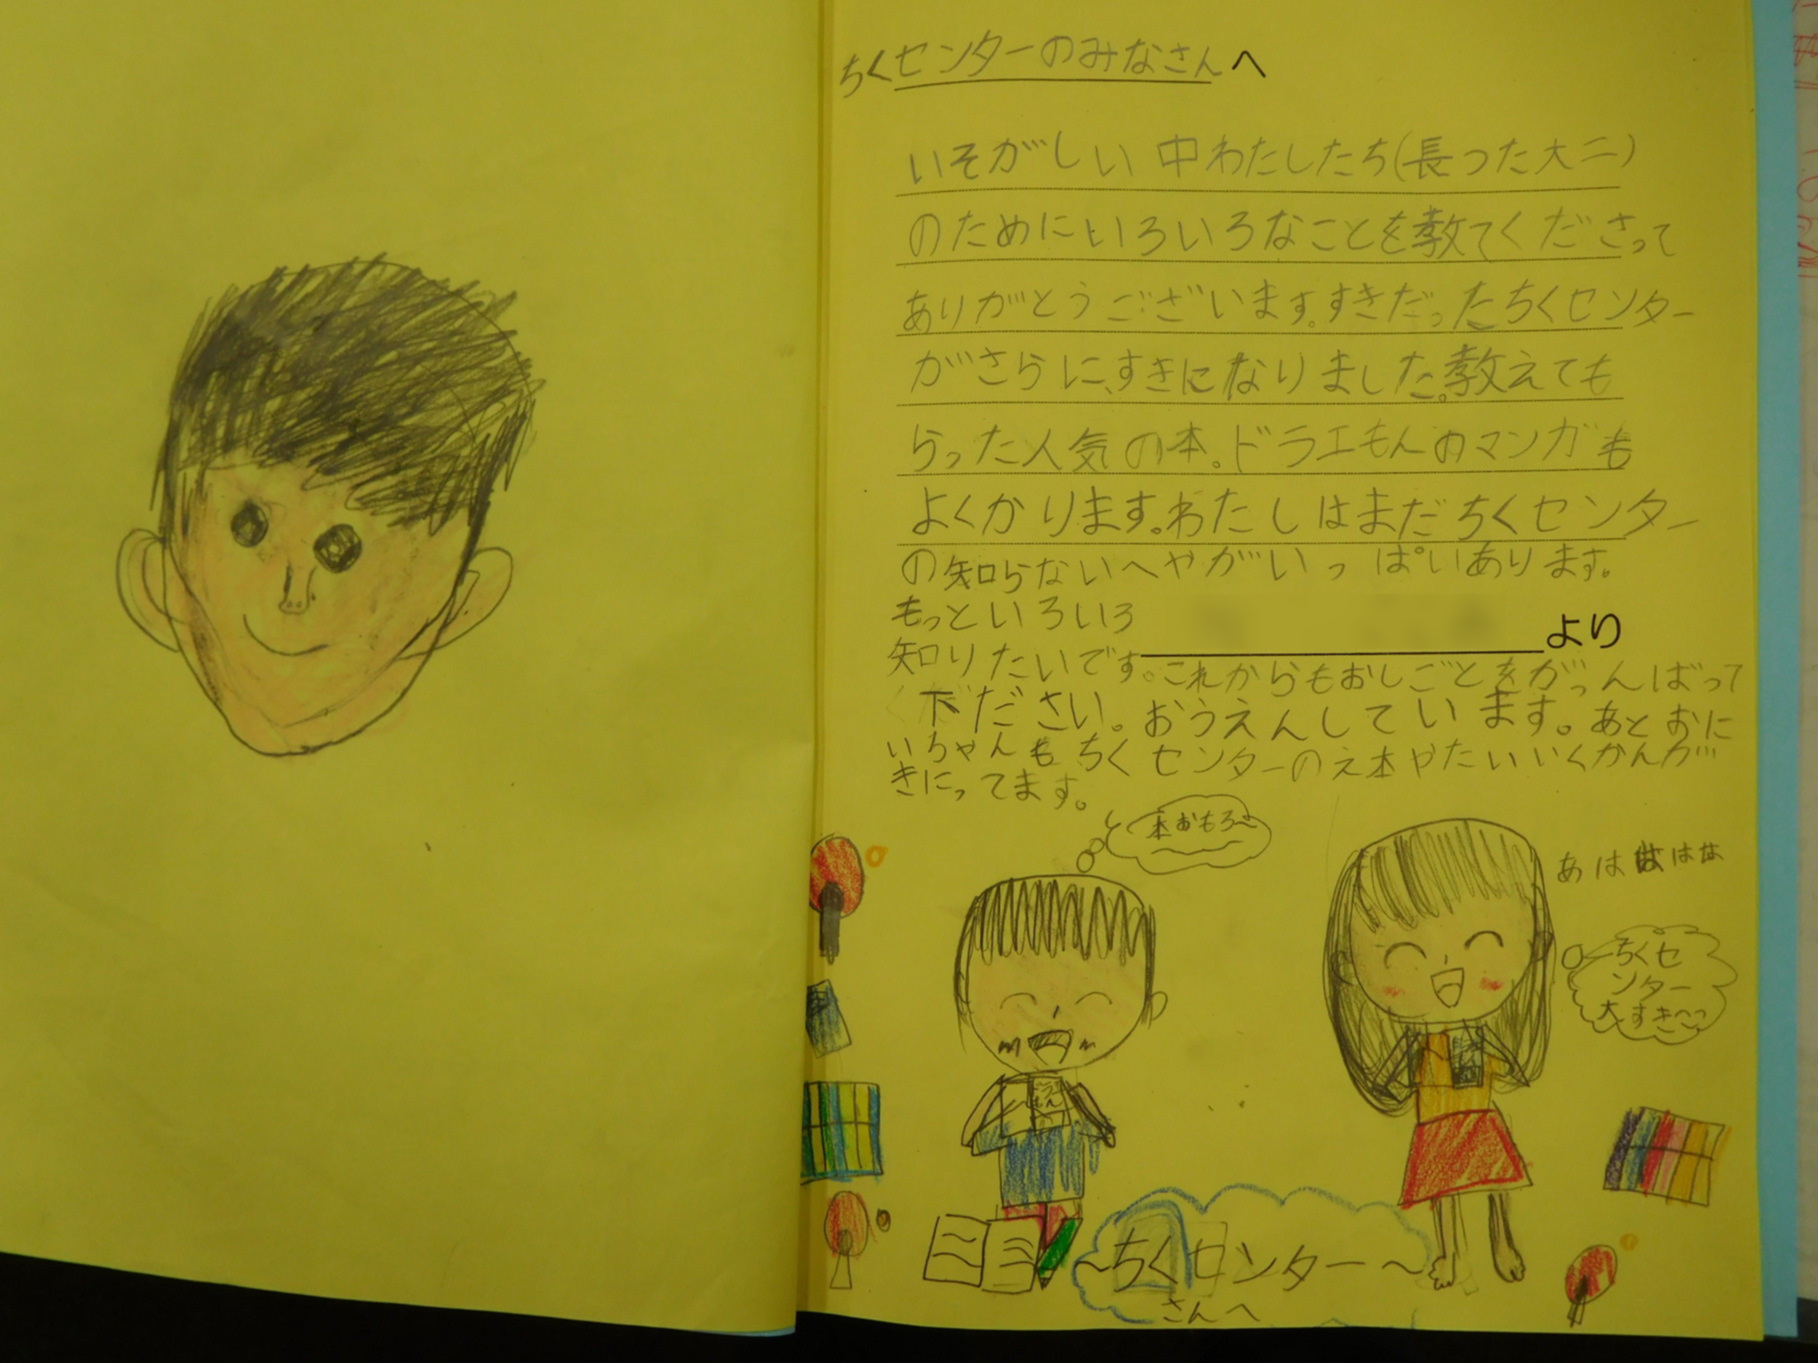 ちくセンターのみなさんへ
いそがしい中わたしたち(長った大二)
のためにいろいろなことを教てくださって
ありがとうございます。すきだったちくセンター
がさらに、すきになりました。教えても
らった人気の本。ドラエもんのマンガも
よくかります。わたしはまだちくセンター
の知らないへやがいっぱいあります。
もっといろいろ
より
知りたいです。これからもおしごとをがっんばって
下ださい。おうえんしています。あとおに
いちゃんもちくセンターのえ本やたいいくかんが
きにってます。
本おもろ〜
あはははは
ちくセ
ンター
大すき〜っ
〜ちくセンター〜
さんへ